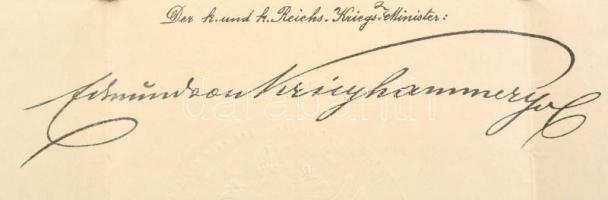 Der k. und k. Reichs-Kriegs-Minister:
Edmund von Krieghammer
darabanth